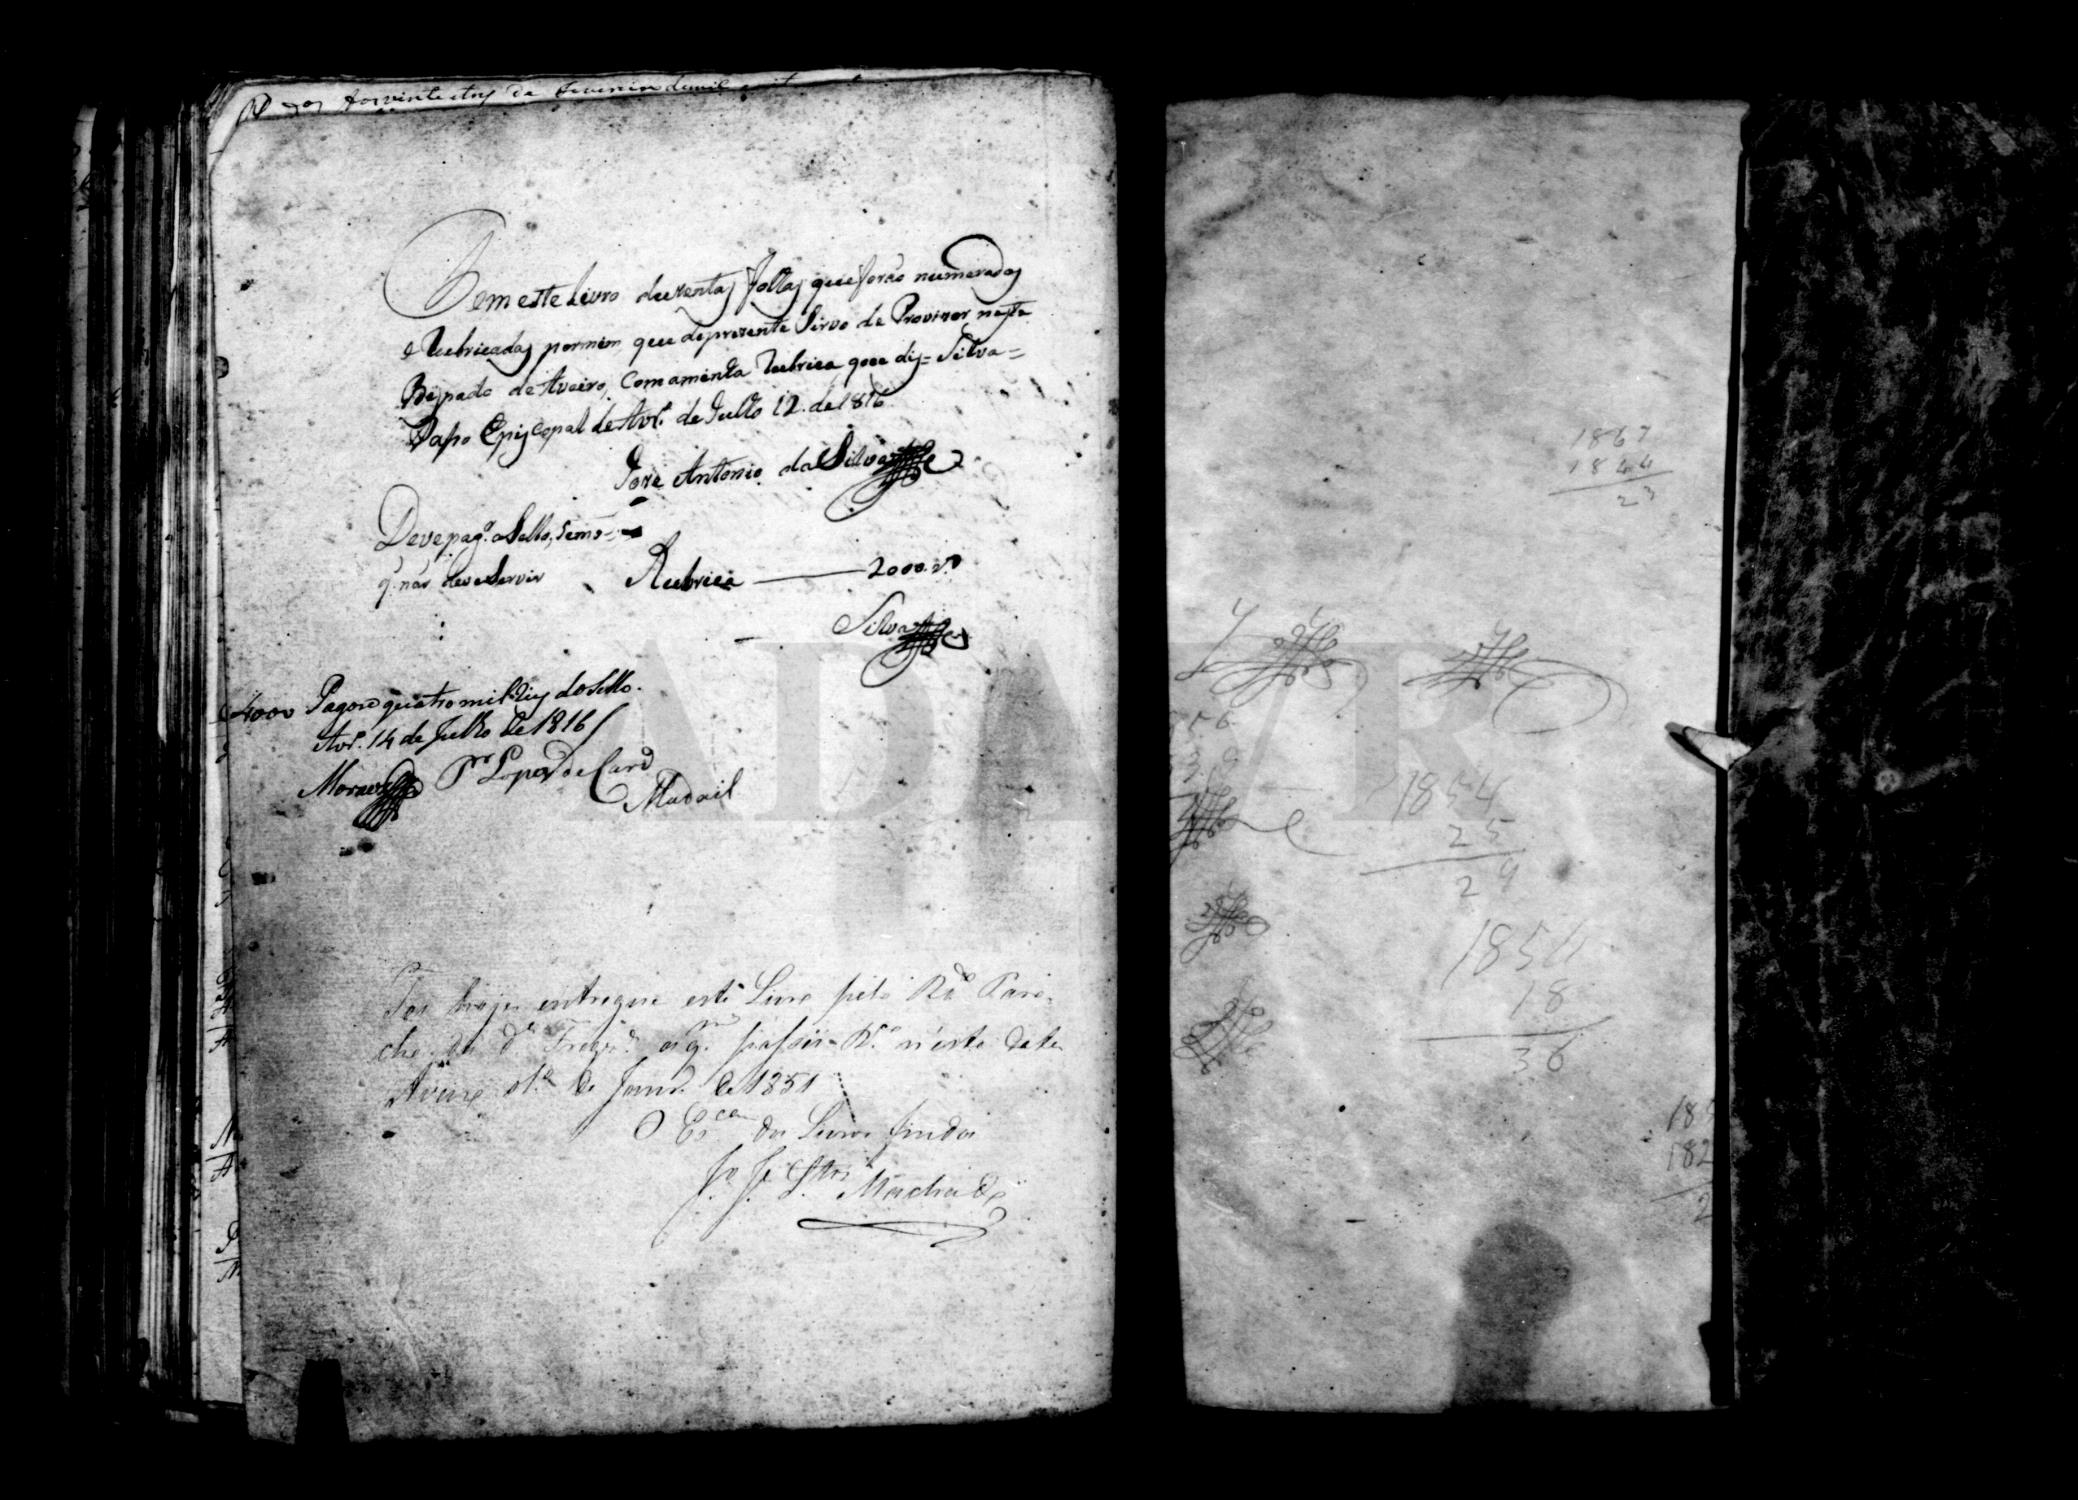 aos vinte e tres de
Tem este Livro duzentas folhas que forão numeradas
e Rubricadas por mim, que de prezente Sirvo de Provizor neste
Bispado de Aveiro, com a minha Rubrica que diz = Silva =
Passo Episcopal de Avr.º de Julho 12 de 1816
Joze Antonio da Silva
Deve pag.r o Sello, sem o
q. não deve Servir
Rubrica — 2000 r.s
Silva
4000 Pagou quatro mil Reis do Sello.
Avr.º 14 de Julho de 1816
Moraes P.r Lopes de Card
Madail
Foi hoje entregue este Livro pelo R.do Paro-
cho da d.a Freg.a a q.m passei R.o n'esta data
Aveiro de Janr.o de 1851
O Es.cam dos Livros findos
Machado
1867
1844
23
56
39
1854
25
29
1854
18
36
18
182
2
ADAVR